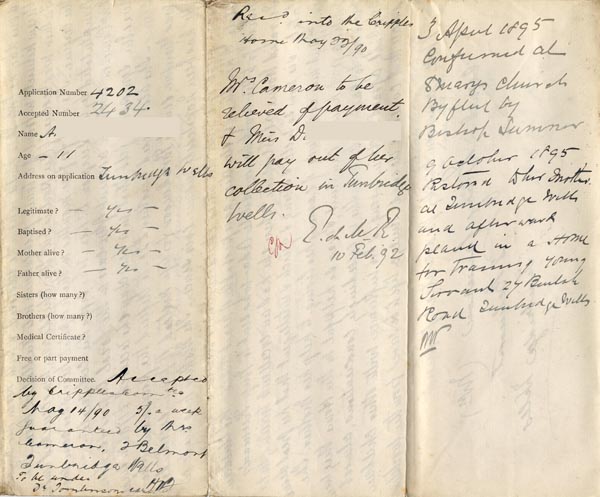 Application Number 4202
Accepted Number 2434.
Name A.
Age - 11
Address on application Tunbridge Wells
Legitimate? - Yes -
Baptised? - Yes -
Mother alive? - Yes -
Father alive? - Yes -
Sisters (how many?)
Brothers (how many?)
Medical Certificate?
Free or part payment
Decision of Committee. Accepted
by Cripples Home
May 14/90 5/- a week
guaranteed by Mrs
Cameron, 2 Belmont
Tunbridge Wells
To be under
Dr Tomlinson
Recd. into the Cripples
Home May 22/90
Mrs. Cameron to be
relieved of payment,
& Miss D.
will pay out of her
collection in Tunbridge
Wells.
E. de M. R.
10 Feb. 92
3 April 1895
Confirmed at
S Marys Church
Byfleet by
Bishop Sumner
9 October 1895
Restored to her Mother
at Tunbridge Wells
and afterwards
placed in a Home
for Training Young
Servants 27
Road Tunbridge Wells